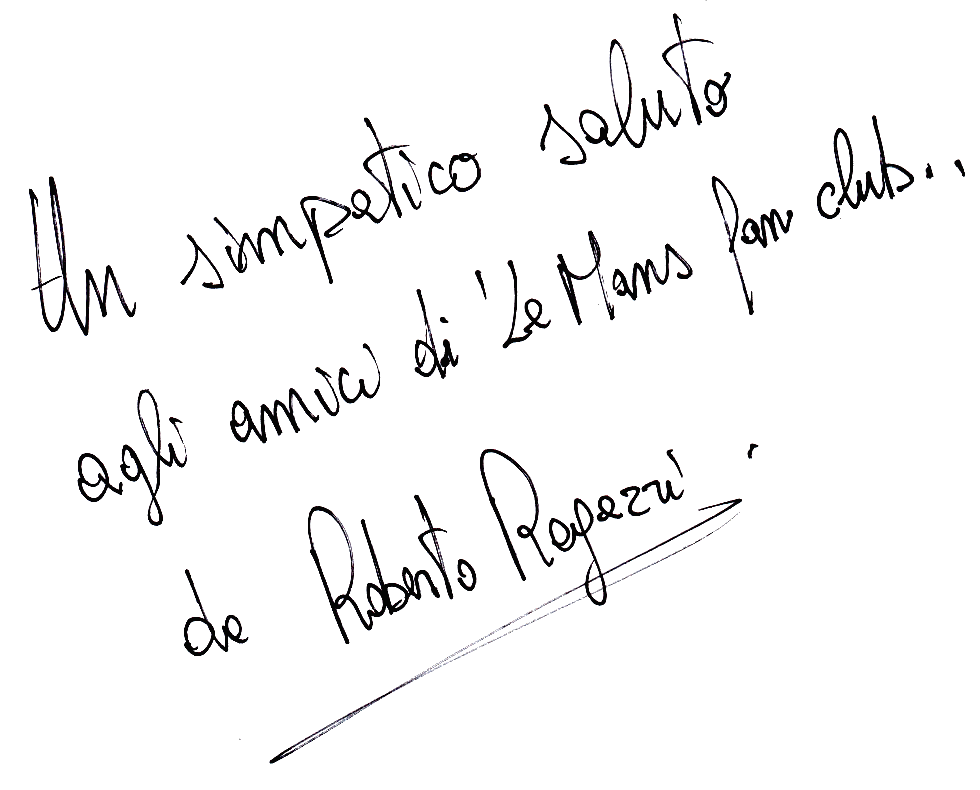 Un simpatico saluto
agli amici di 'Le Mans fan club..
da Roberto Ragazzi.